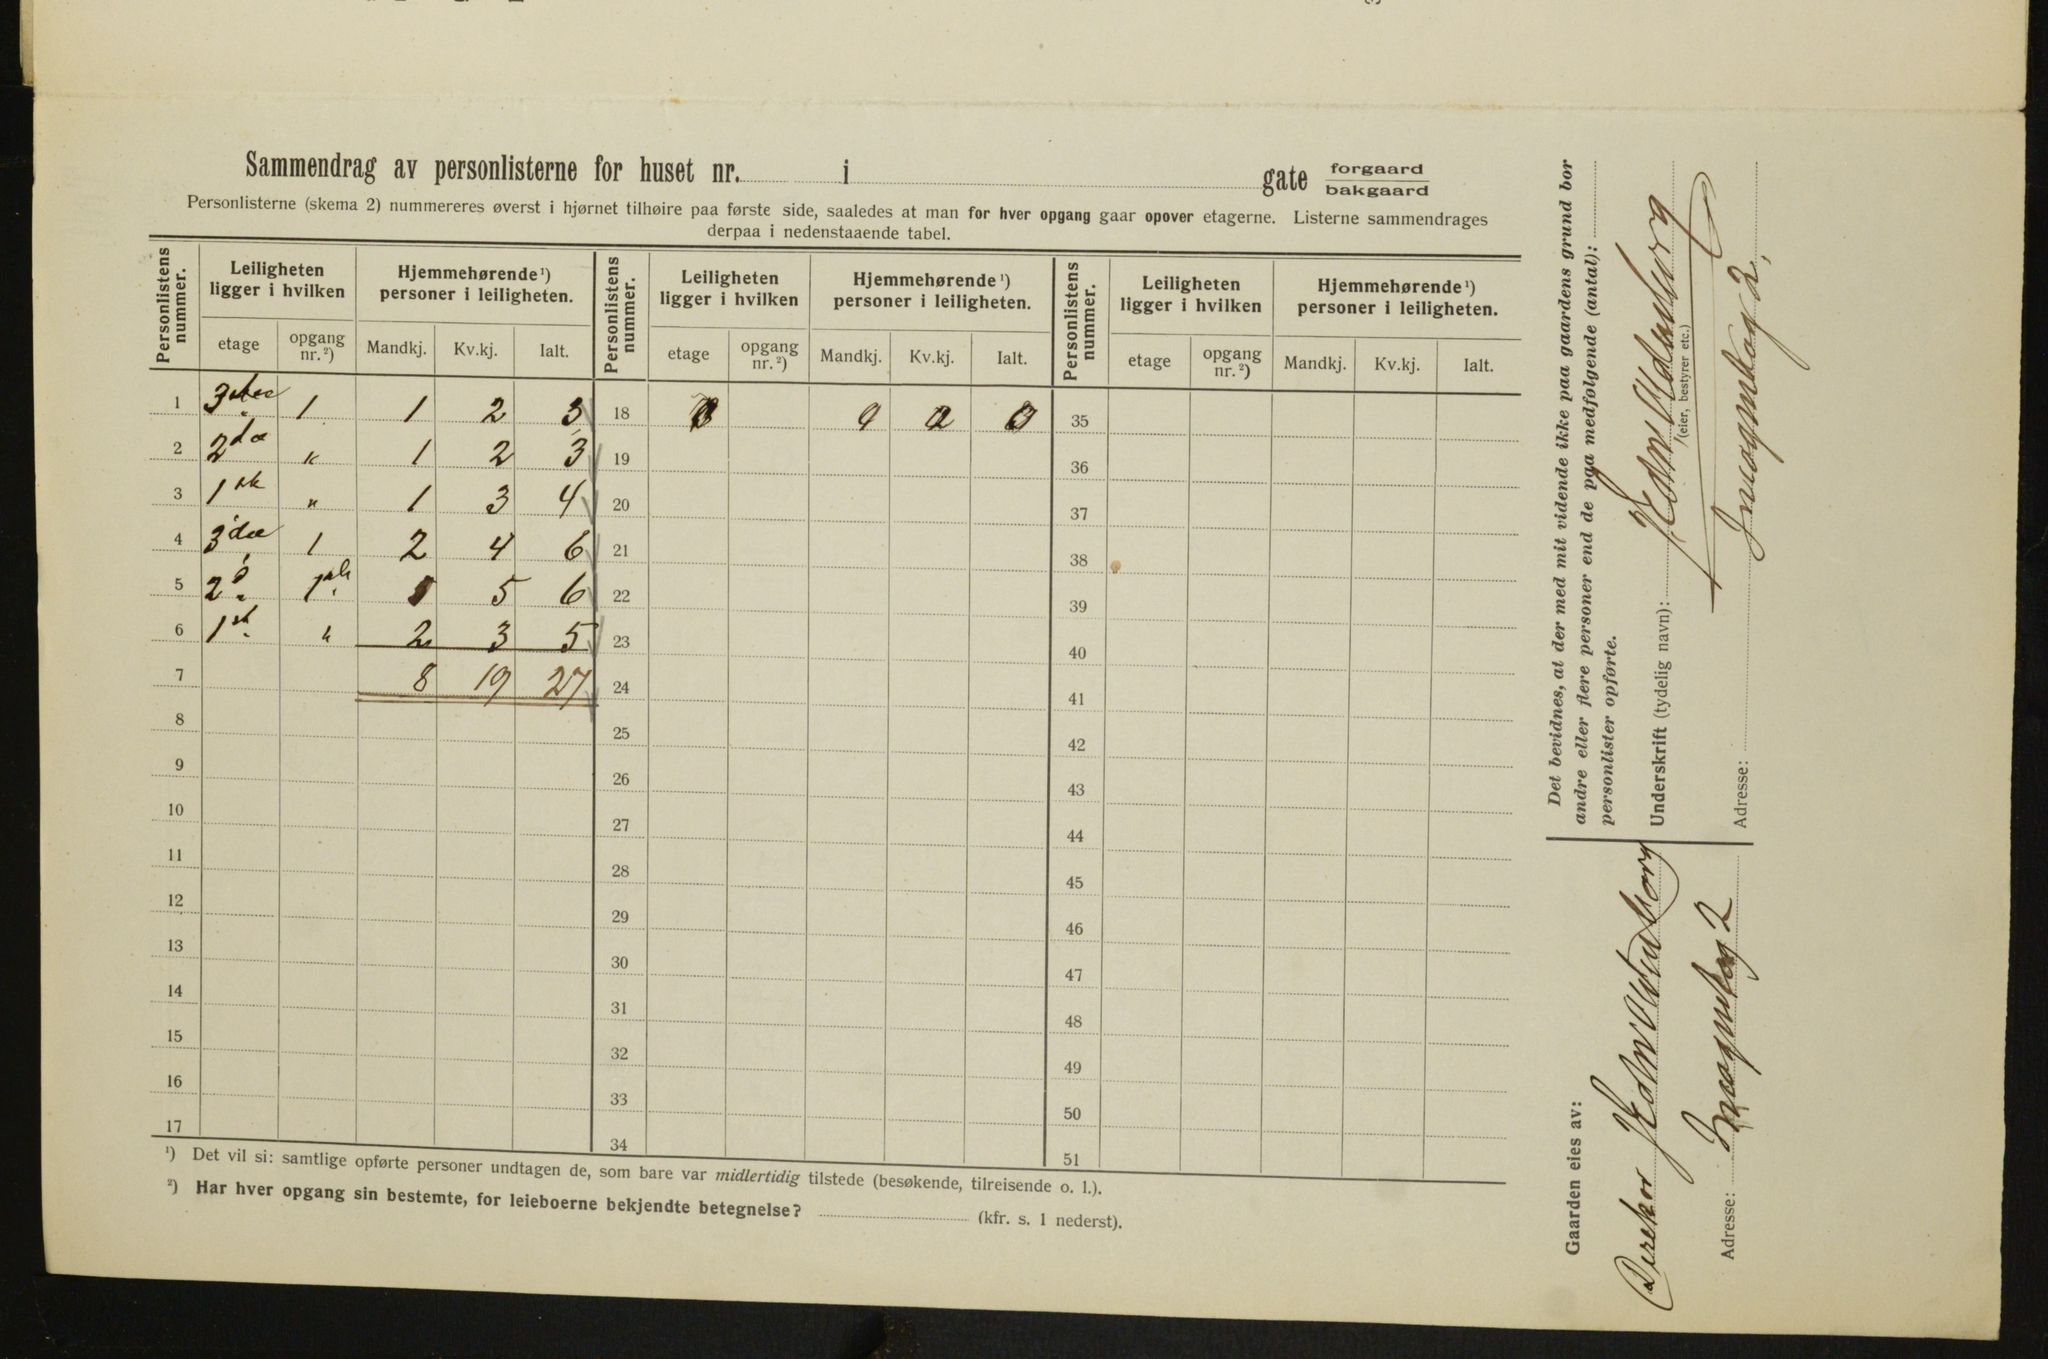 Sammendrag av personlisterne for huset nr. i gate forgaard
bakgaard
Personlisterne (skema 2) nummereres øverst i hjørnet tilhøire paa første side, saaledes at man for hver opgang gaar opover etagerne. Listerne sammendrages
derpaa i nedenstaaende tabel.
Personlistens nummer. Leiligheten ligger i hvilken Hjemmehørende ¹) personer i leiligheten. Personlistens nummer. Leiligheten ligger i hvilken Hjemmehørende ¹) personer i leiligheten. Personlistens nummer. Leiligheten ligger i hvilken Hjemmehørende ¹) personer i leiligheten.
etage opgang nr. ²) Mandkj. Kv.kj. Ialt. etage opgang nr. ²) Mandkj. Kv.kj. Ialt. etage opgang nr. ²) Mandkj. Kv.kj. Ialt.
1 1 1 2 3 18 35
2 2 " 1 2 3 19 36
3 1 " 1 3 4 20 37
4 3 1 2 4 6 21 38
5 2 1 5 6 22 39
6 1 " 2 3 5 23 40
7 8 19 27 24 41
8 25 42
9 26 43
10 27 44
11 28 45
12 29 46
13 30 47
14 31 48
15 32 49
16 33 50
17 34 51
¹) Det vil si: samtlige opførte personer undtagen de, som bare var midlertidig tilstede (besøkende, tilreisende o. l.).
²) Har hver opgang sin bestemte, for leieboerne bekjendte betegnelse? (kfr. s. 1 nederst).
Det bevidnes, at der med mit vidende ikke paa gaardens grund bor
andre eller flere personer end de paa medfølgende (antal):
personlister opførte.
Underskrift (tydelig navn):
(eier, bestyrer etc.)
Adresse: 2
Gaarden eies av:
Adresse: 2